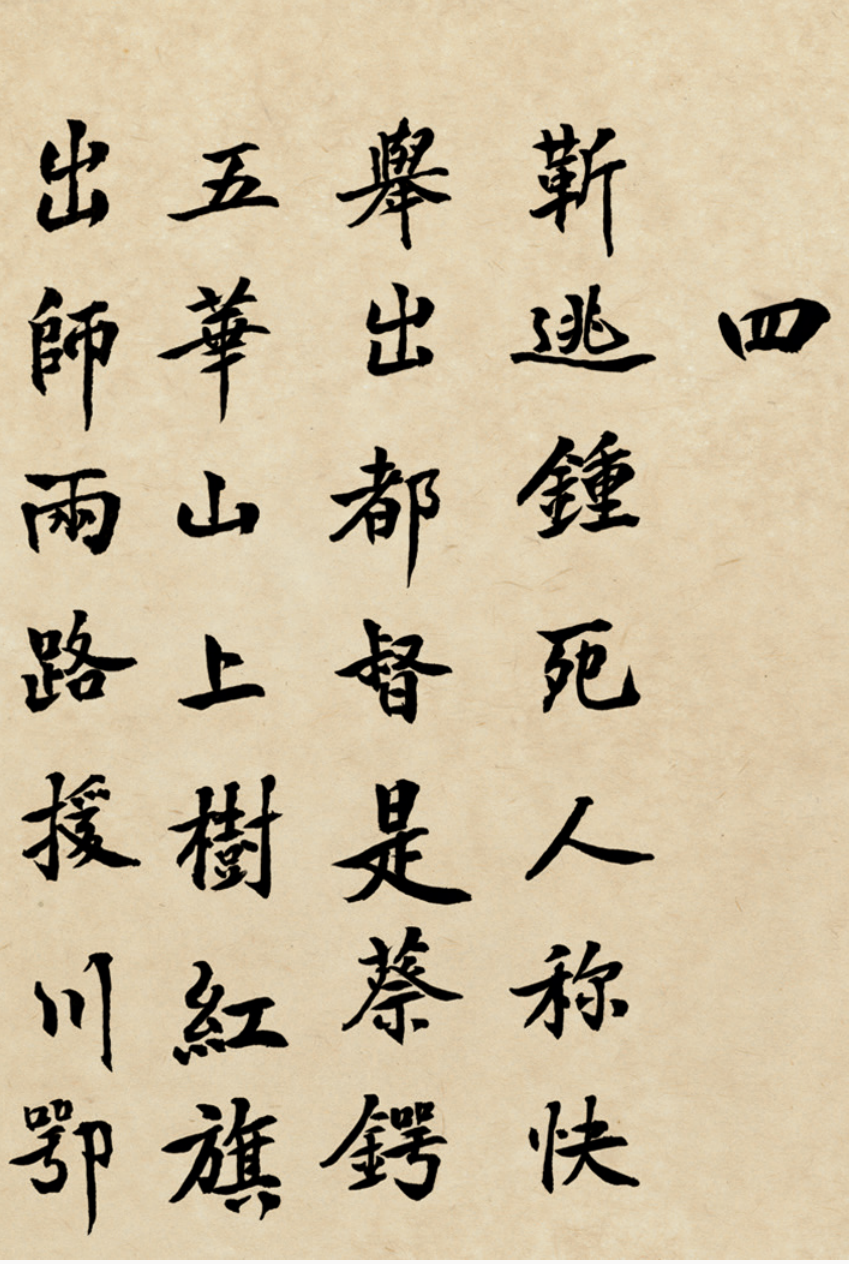 四
靳逃鍾死人称快
舉出都督是蔡鍔
五華山上樹紅旗
出師兩路援川鄂